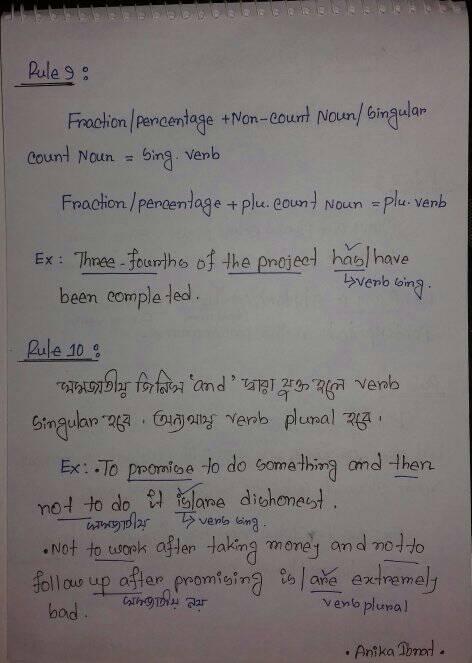 Rule 9 :
Fraction/percentage + Non-count Noun/ Singular
count Noun = Sing. verb
Fraction/percentage + plu. count Noun = plu. verb
Ex : Three-fourths of the project has/have
↳verb sing.
been completed.
Rule 10 :
সমজাতীয় জিনিস 'and' দ্বারা যুক্ত হলে verb
singular হবে। অন্যথায় verb plural হবে।
Ex: • To promise to do something and then
not to do it is/are dishonest.
সমজাতীয় ↳ verb sing.
• Not to work after taking money and not to
follow up after promising is/are extremely
bad. সমজাতীয় নয় verb plural
• Anika Ibnat •